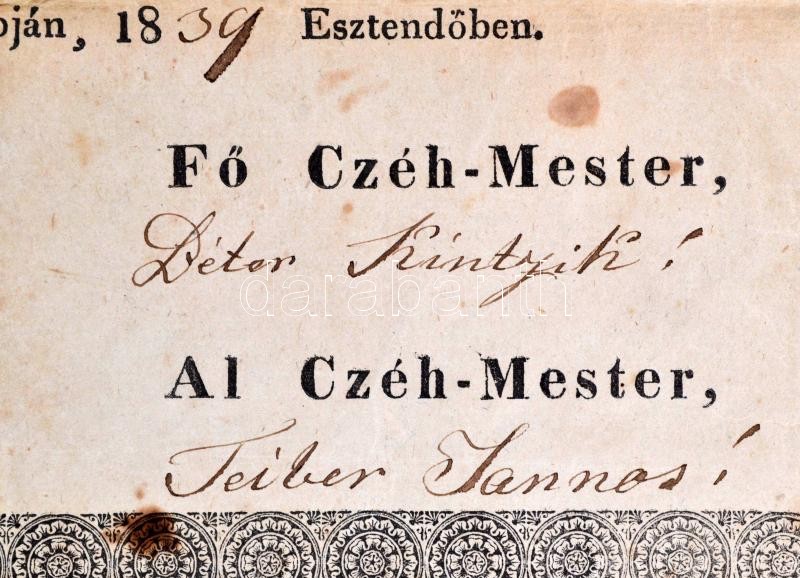 pján, 1839 Esztendőben.
Fő Czéh-Mester,
Déter Kintzik!
darabanth
Al Czéh-Mester,
Teiber Jannos!